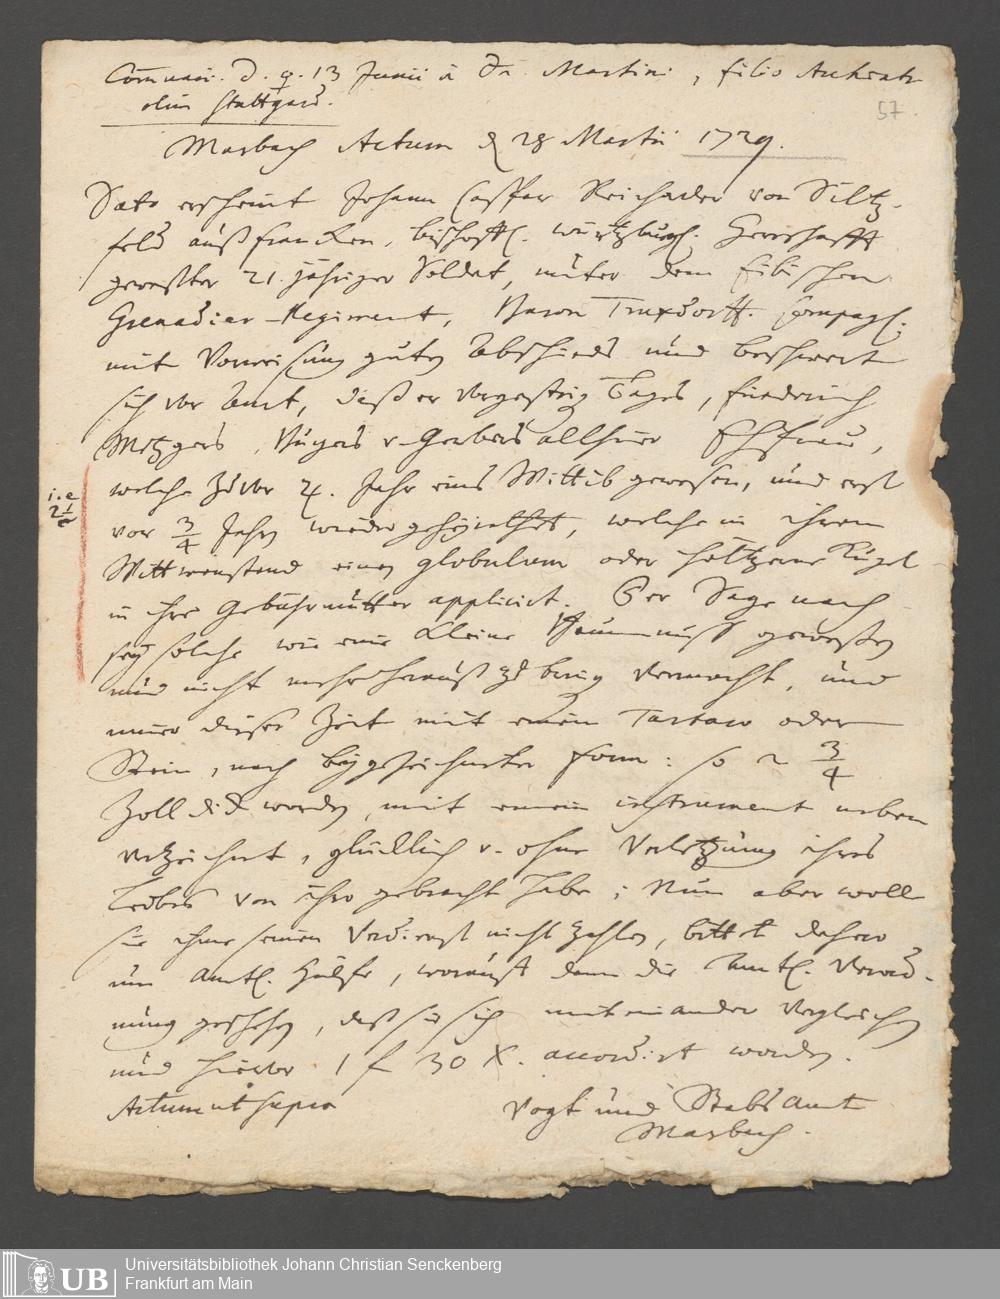 Com̄unic. D. 9. 13 Junii à Dr. Martini, filio Archiatr.
olim Stuttgard.
57.
Marbach Actum d 28 Martii 1729.
Dato erscheint Johann Caspar Reichard von Siltz-
feld auß francken, bischoffl. würtzburgl. Herrschafft
geweßter 21. jähriger Soldat, unter dem
Grenadier-Regiment, Baron Truxdorff. Compagl.
mit Vorweisung guten Abschieds und beschwert
sich vor Amt, daß er vorgestrig Tages, friedrich
Metzgers, Burgers v. Gerbers allhier Ehfrau,
welche zuvor 4. Jahr eine Wittib gewesen, und erst
i.e
vor 3/4 Jahren wieder geheyrathet, welche in ihrem
Wittwenstand einen globulum oder höltzerne Kugel
in ihre Gebährmutter applicirt. Der Sage nach
sey solche wie eine kleine Baumnuß geweßen
und nicht mehr herauß zu bring vermocht, und
inner dießer Zeit mit einem Tartaro oder
Stein, nach beygezeichneter form: so 2 3/4
Zoll dick worden, mit einem instrument neben
verzeichnet, glücklich v. ohne Verletzung ihres
Leibes von ihro gebracht habe; Nun aber woll
sie ihme seinen Verdienst nicht zahlen, bittet dahero
um Amtl. Hülfe, worauf dann die Amtl. Verord-
nung geschehen, daß sie sich mit einander vergleichen
und hiervor 1 f 30 X. accordirt worden.
Actum ut supra
Vogt und Stabs Amt
Marbach.
UB
Universitätsbibliothek Johann Christian Senckenberg
Frankfurt am Main